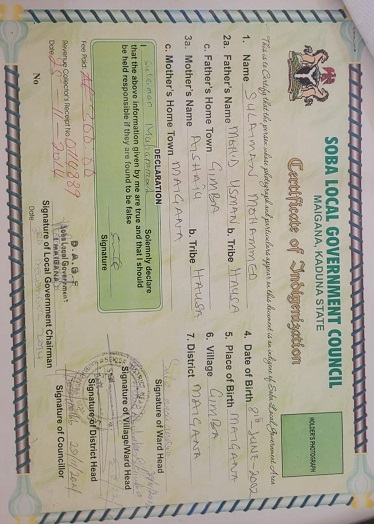 SOBA LOCAL GOVERNMENT COUNCIL
MAIGANA, KADUNA STATE
Certificate of Indigenization
HOLDER'S PHOTOGRAPH
This is to Certify that the person whose photograph and particulars appear in this document is an indigene of Soba Local Government Area
1. Name SULAIMAN MOHAMMED
4. Date of Birth 8th JUNE 2002
2a. Father's Name b. Tribe HAUSA
5. Place of Birth MAIGANA
c. Father's Home Town GIMBA
6. Village GIMBA
3a. Mother's Name b. Tribe HAUSA
7. District MAIGANA
c. Mother's Home Town MAIGANA
DECLARATION
I Suleman Muhammad Solemnly declare
that the above information given by me are true and that I should
be held responsible if they are found to be false
Signature
Signature of Ward Head
Signature of Village/Ward Head
Signature of District Head
Fee Paid
Revenue Collector's Receipt No.
Date
No
D.A.G.S
Soba Local Government
MAIGANA
Signature of Local Government Chairman
Date
Signature of Councilor